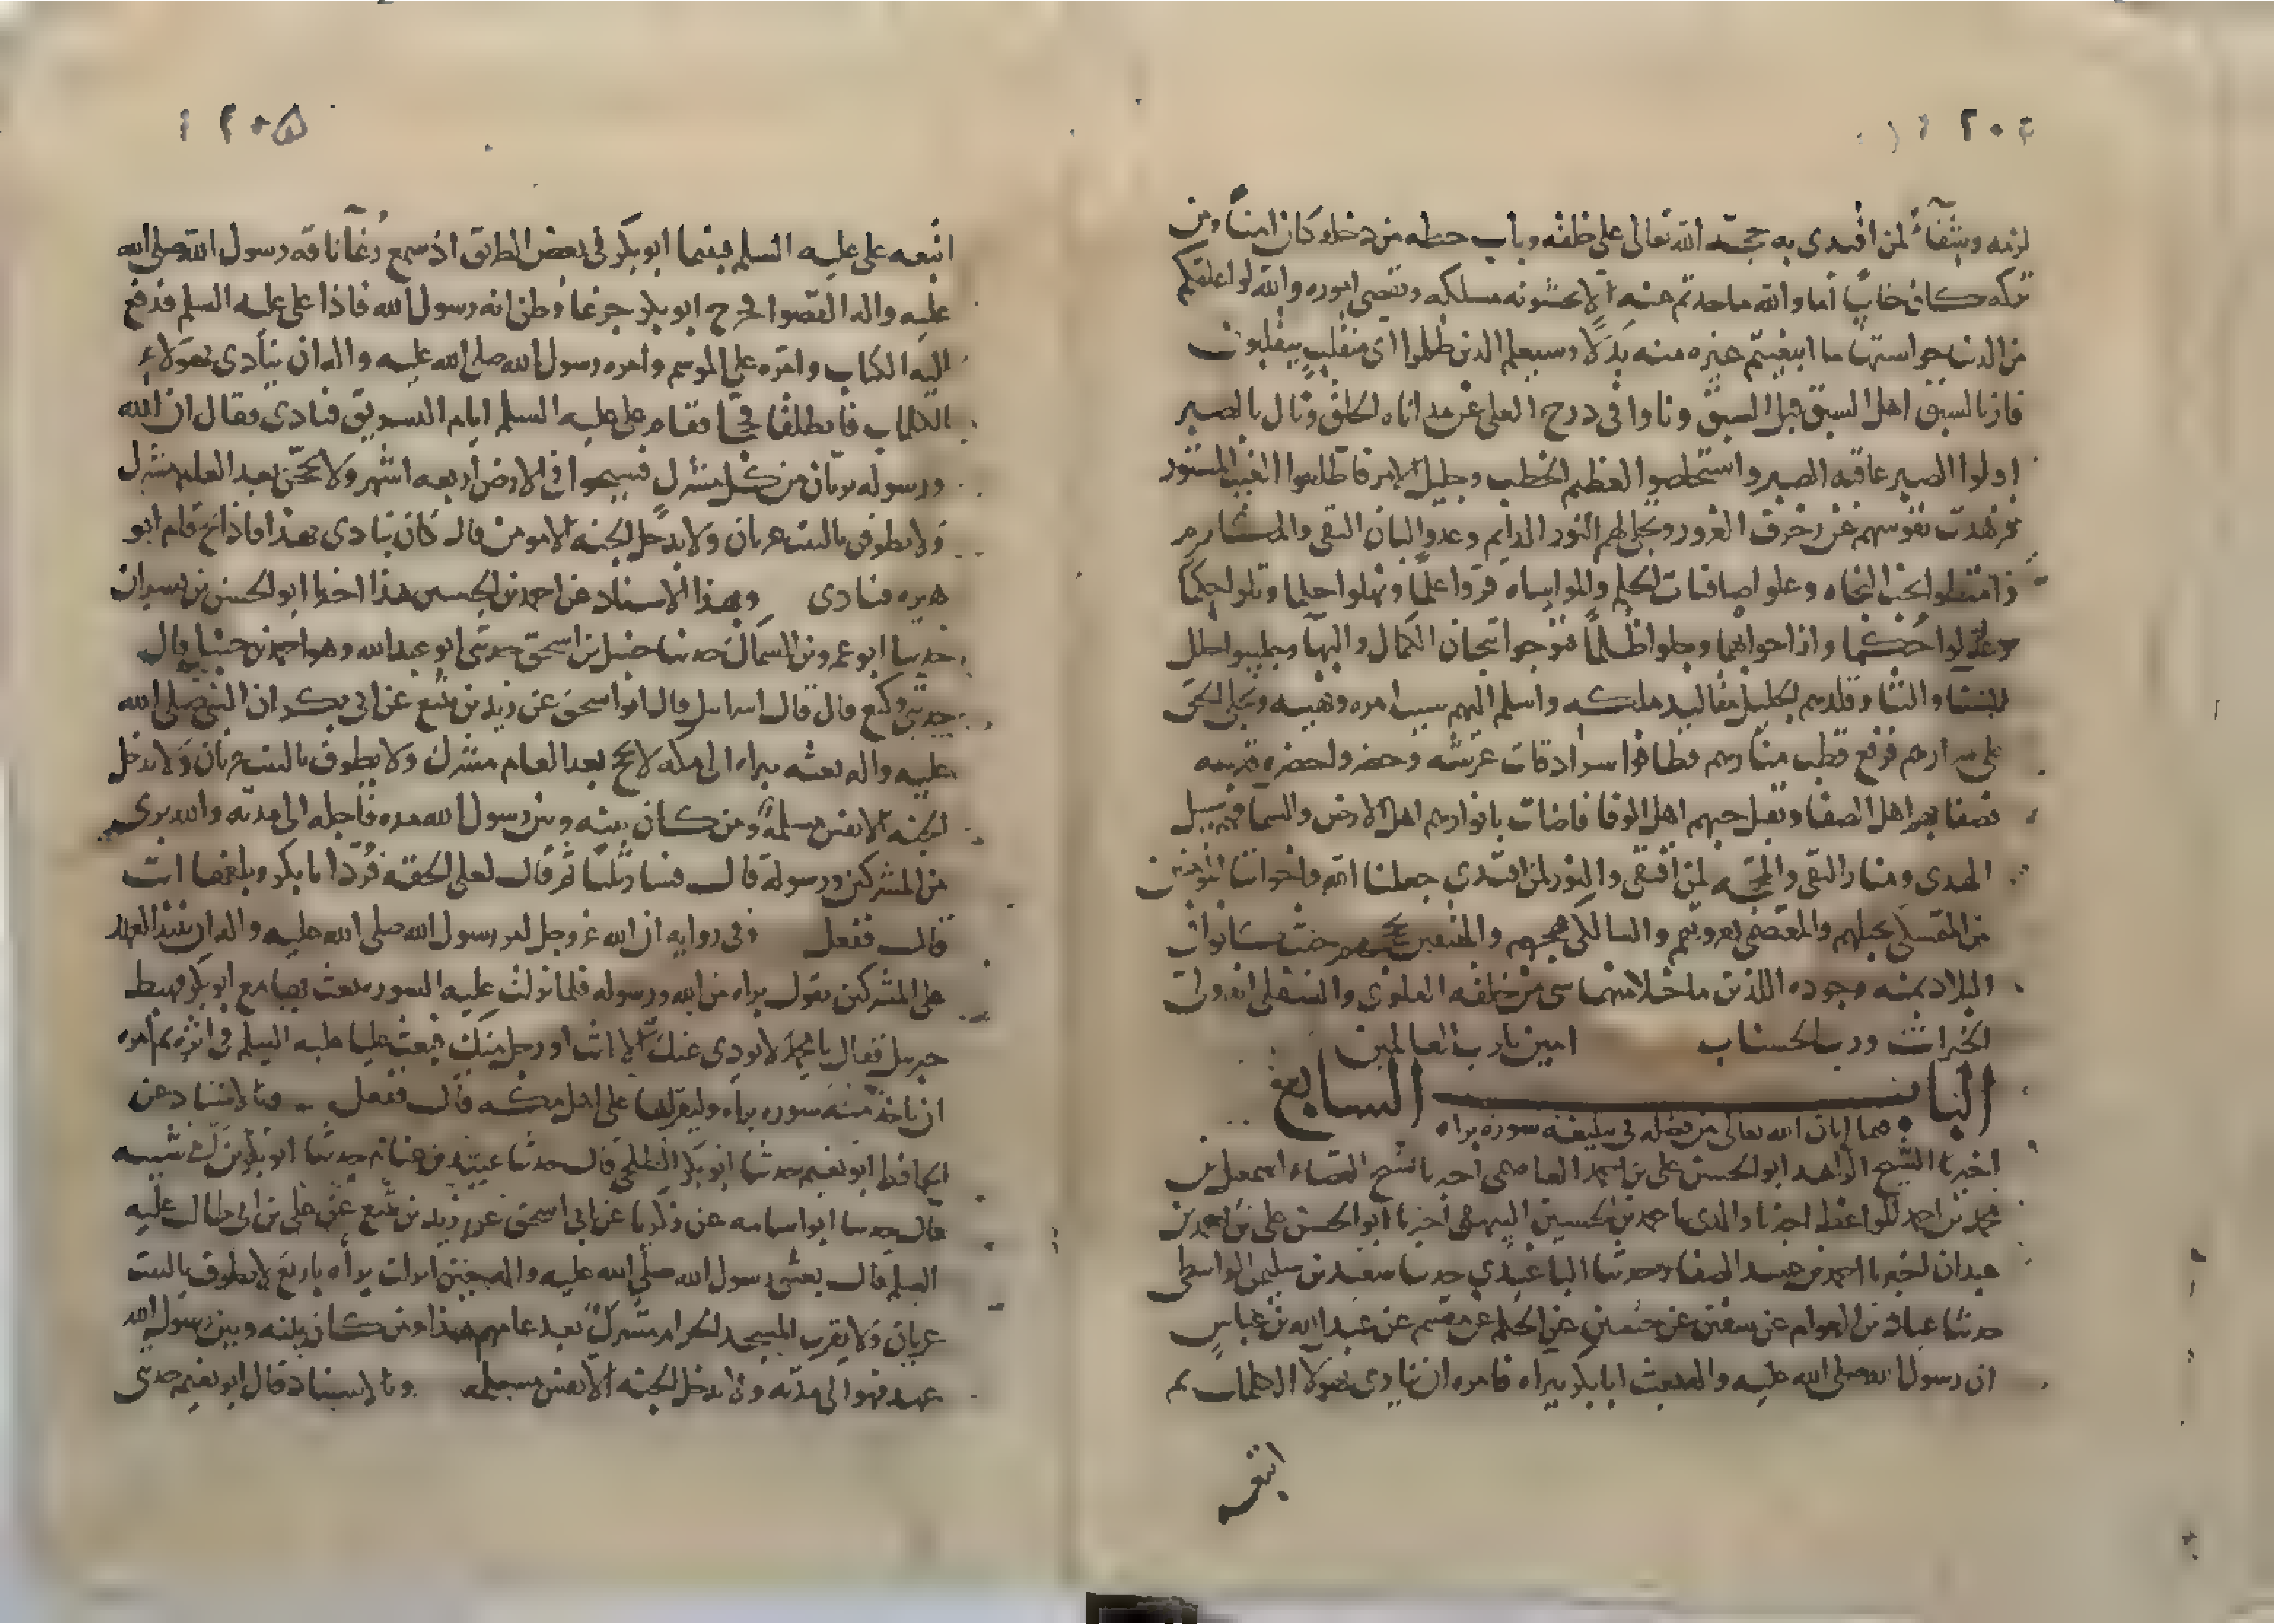 ٢٠٤
لزمه وشفاء لمن اقتدى به حجة الله تعالى على خلقه وباب حطه من دخله كان امنا ومن
تركه كان خايبا أما والله ما حدتم عنه الا تخشونه مسلكه وتقصى اموره والله لو اعلقكم
من الدين حواستها ما ابتغيتم غيره منه بدلا وسيعلم الذين ظلموا اى منقلب ينقلبون
فاز بالسبق اهل السبق قبل السبق ونالوا فى درج العلى عن مداناه الخلق ونال بالصبر
اولوا الصبر عاقبه الصبر واستخلصوا العظيم الخطب وجليل الامر فاطلعوا الغيب المستور
فزهدت نفوسهم عن زخرف الغرور وتجلى لهم النور الدايم وغذوا لبان التقى والمكارم
النجاه وعلوا صافنات الحلم والمواساه فرووا علما ونهلوا حلما وتلوا حكما
حكما وان احواهما وجلوا ظلما فتوجوا تيجان الكمال والبها وجلببوا حلل
السنا والثنا وقلدهم الجليل مقاليد ملكه واسلم اليهم سيب امره وهيبه وتجلى الحق
على سرارهم فرفع قطب منارهم فطافوا سرادقات عرشه وحضروا حضره قدسه
فصفا بهم اهل الصفا وتعبل حبهم اهل الوفا فاضات بانوارهم اهل الارض والسما فهم سبيل
الهدى ومنار التقى والحجة لمن اتقى والنور لمن اقتدى جعلنا الله واخواننا المؤمنين
من المتمسكين بحبلهم والمعتصمين بعروتهم والسالكين نهجهم والمتبعين لهم حيث كانوا فى
البلاد بمنه وجوده اللذين ما خلا منهما شى من خلقه العلوى والسفلى انه ولى
الخيرات ورب الحسنات امين يارب العالمين
الباب السابع
مما ابان الله تعالى من فضله فى تبليغه سورة براه
اخبرنا الشيخ الزاهد ابو الحسن على بن احمد العاصمى اخبرنا شيخ القضاء اسمعيل بن
محمد بن احمد الواعظ اخبرنا والدى احمد بن الحسين البيهقى اخبرنا ابو الحسن على بن احمد بن
عبدان اخبرنا احمد بن عبيد الصفار حدثنا الباغندي حدثنا سعيد بن سليمن الواسطى
حدثنا عباد بن العوام عن سفين عن حسين عن الحكم عن مقسم عن عبد الله بن عباس
ان رسول الله صلى الله عليه واله بعث ابا بكر ببراه فامره ان ينادى بهؤلا الكلمات ثم
اتبعه
٢٠٥
اتبعه على عليه السلم فبينما ابو بكر فى بعض الطريق اذ سمع رغا ناقه رسول الله صلى الله
عليه واله القصوا فخرج ابو بكر جزعا وظن انه رسول الله فاذا على عليه السلم فدفع
اليه الكتاب وامره على الموسم وامره رسول الله صلى الله عليه واله ان ينادى بهؤلاء
الكلمات فانطلقا فحجا فقام على عليه السلم ايام التشريق فنادى فقال ان الله
ورسوله بريان من كل مشرك فسيحوا فى الارض اربعه اشهر ولا يحجن بعد العام مشرك
ولا يطوفن بالبيت عريان ولا يدخل الجنه الا مومن قال كان ينادى بهذا فاذا بح قام ابو
هريره فنادى وبهذا الاسناد عن احمد بن الحسين هذا اخبرنا ابو الحسن بن بشران
حدثنا ابو عمرو بن السماك حدثنا حنبل بن اسحق حدثنى ابو عبد الله وهو احمد بن حنبل قال
حدثنى وكيع قال قال اسراييل قال ابو اسحق عن زيد بن يثيع عن ابى بكر ان النبى صلى الله
عليه واله بعثه ببراه الى مكه لا يحج بعد العام مشرك ولا يطوف بالبيت عريان ولا يدخل
الجنه الا نفس مسلمة ومن كان بينه وبين رسول الله مده فاجله الى مدته والله برى
من المشركين ورسوله قال فسار ثلثا ثم قال لعلى الحقه فرد ابا بكر وبلغها انت
قال ففعل وفى روايه ان الله عز وجل امر رسول الله صلى الله عليه واله ان ينبذ العهد
الى المشركين بقول براه من الله ورسوله فلما نزلت عليه السوره بعث بها مع ابو بكر فهبط
جبريل فقال يا محمد لا يودى عنك الا انت او رجل منك فبعث عليا عليه السلم فى اثره ثم امره
ان ياخذ منه سوره براه وليقراها على اهل مكه قال ففعل وبالاسناد عن
الحافظ ابو نعيم حدثنا ابو بكر الطلحى قال حدثنا عبيد بن غنام حدثنا ابو بكر بن ابى شيبه
قال حدثنا ابو اسامه عن زكريا عن ابى اسحق عن زيد بن يثيع عن على بن ابى طالب عليه
السلم قال بعثنى رسول الله صلى الله عليه واله حين انزلت براه باربع لا يطوف بالبيت
عريان ولا يقرب المسجد الحرام مشرك بعد عامهم هذا ومن كان بينه وبين رسول الله
عهد فهو الى مدته ولا يدخل الجنه الا نفس مسلمه وبالاسناد قال ابو نعيم حدثنى